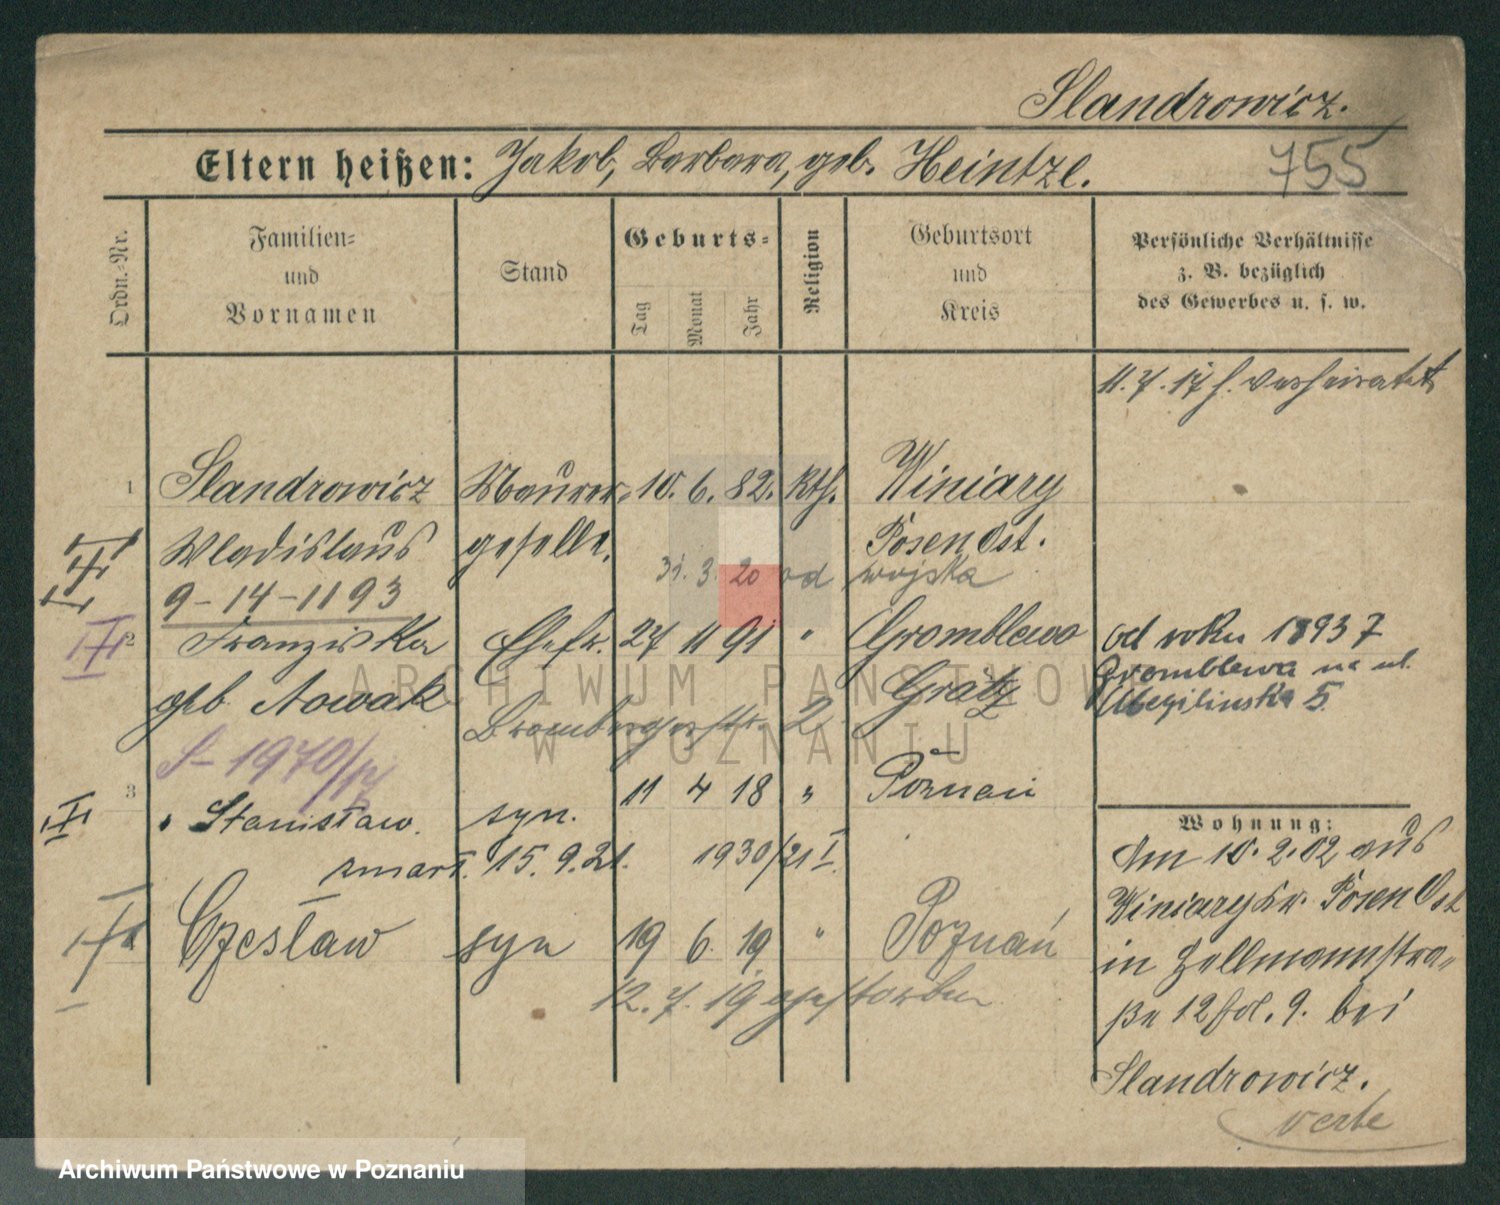 Slandrowicz.
Eltern heißen: Jakob, Barbara, geb. Heintze.
755
Ordn.-Nr.
Familien- und Vornamen
Stand
Geburts-
Tag
Monat
Jahr
Religion
Geburtsort und Kreis
Persönliche Verhältnisse
z. B. bezüglich
des Gewerbes u. s. w.
11.7.17 h. verheiratet
1 Slandrowicz Maurer- 10. 6. 82. Kth. Winiary
Wladislaus geselle. Posen Ost.
31. 3. 20 od wojska
9-14-1193
2 Franziska Ehefr. 27 11 91 " Gromblewo od roku 1893 7
Gromblewa na ul.
geb Nowak Grätz
5.
Brombergerstr. 2
S-1970/
3 Stanisław. syn. 11 4 18 " Poznań
zmarł. 15. 9. 21. 1930/21 I.
Czesław syn 19 6. 19 " Poznań
12. 7. 19 gestorben
Wohnung:
Am 10.2.02 aus
Winiary Kr. Posen Ost
in Hellmannstra-
ße 12 fol. 9. bei
Slandrowicz.
verte
ARCHIWUM PAŃSTWOWE
W POZNANIU
Archiwum Państwowe w Poznaniu